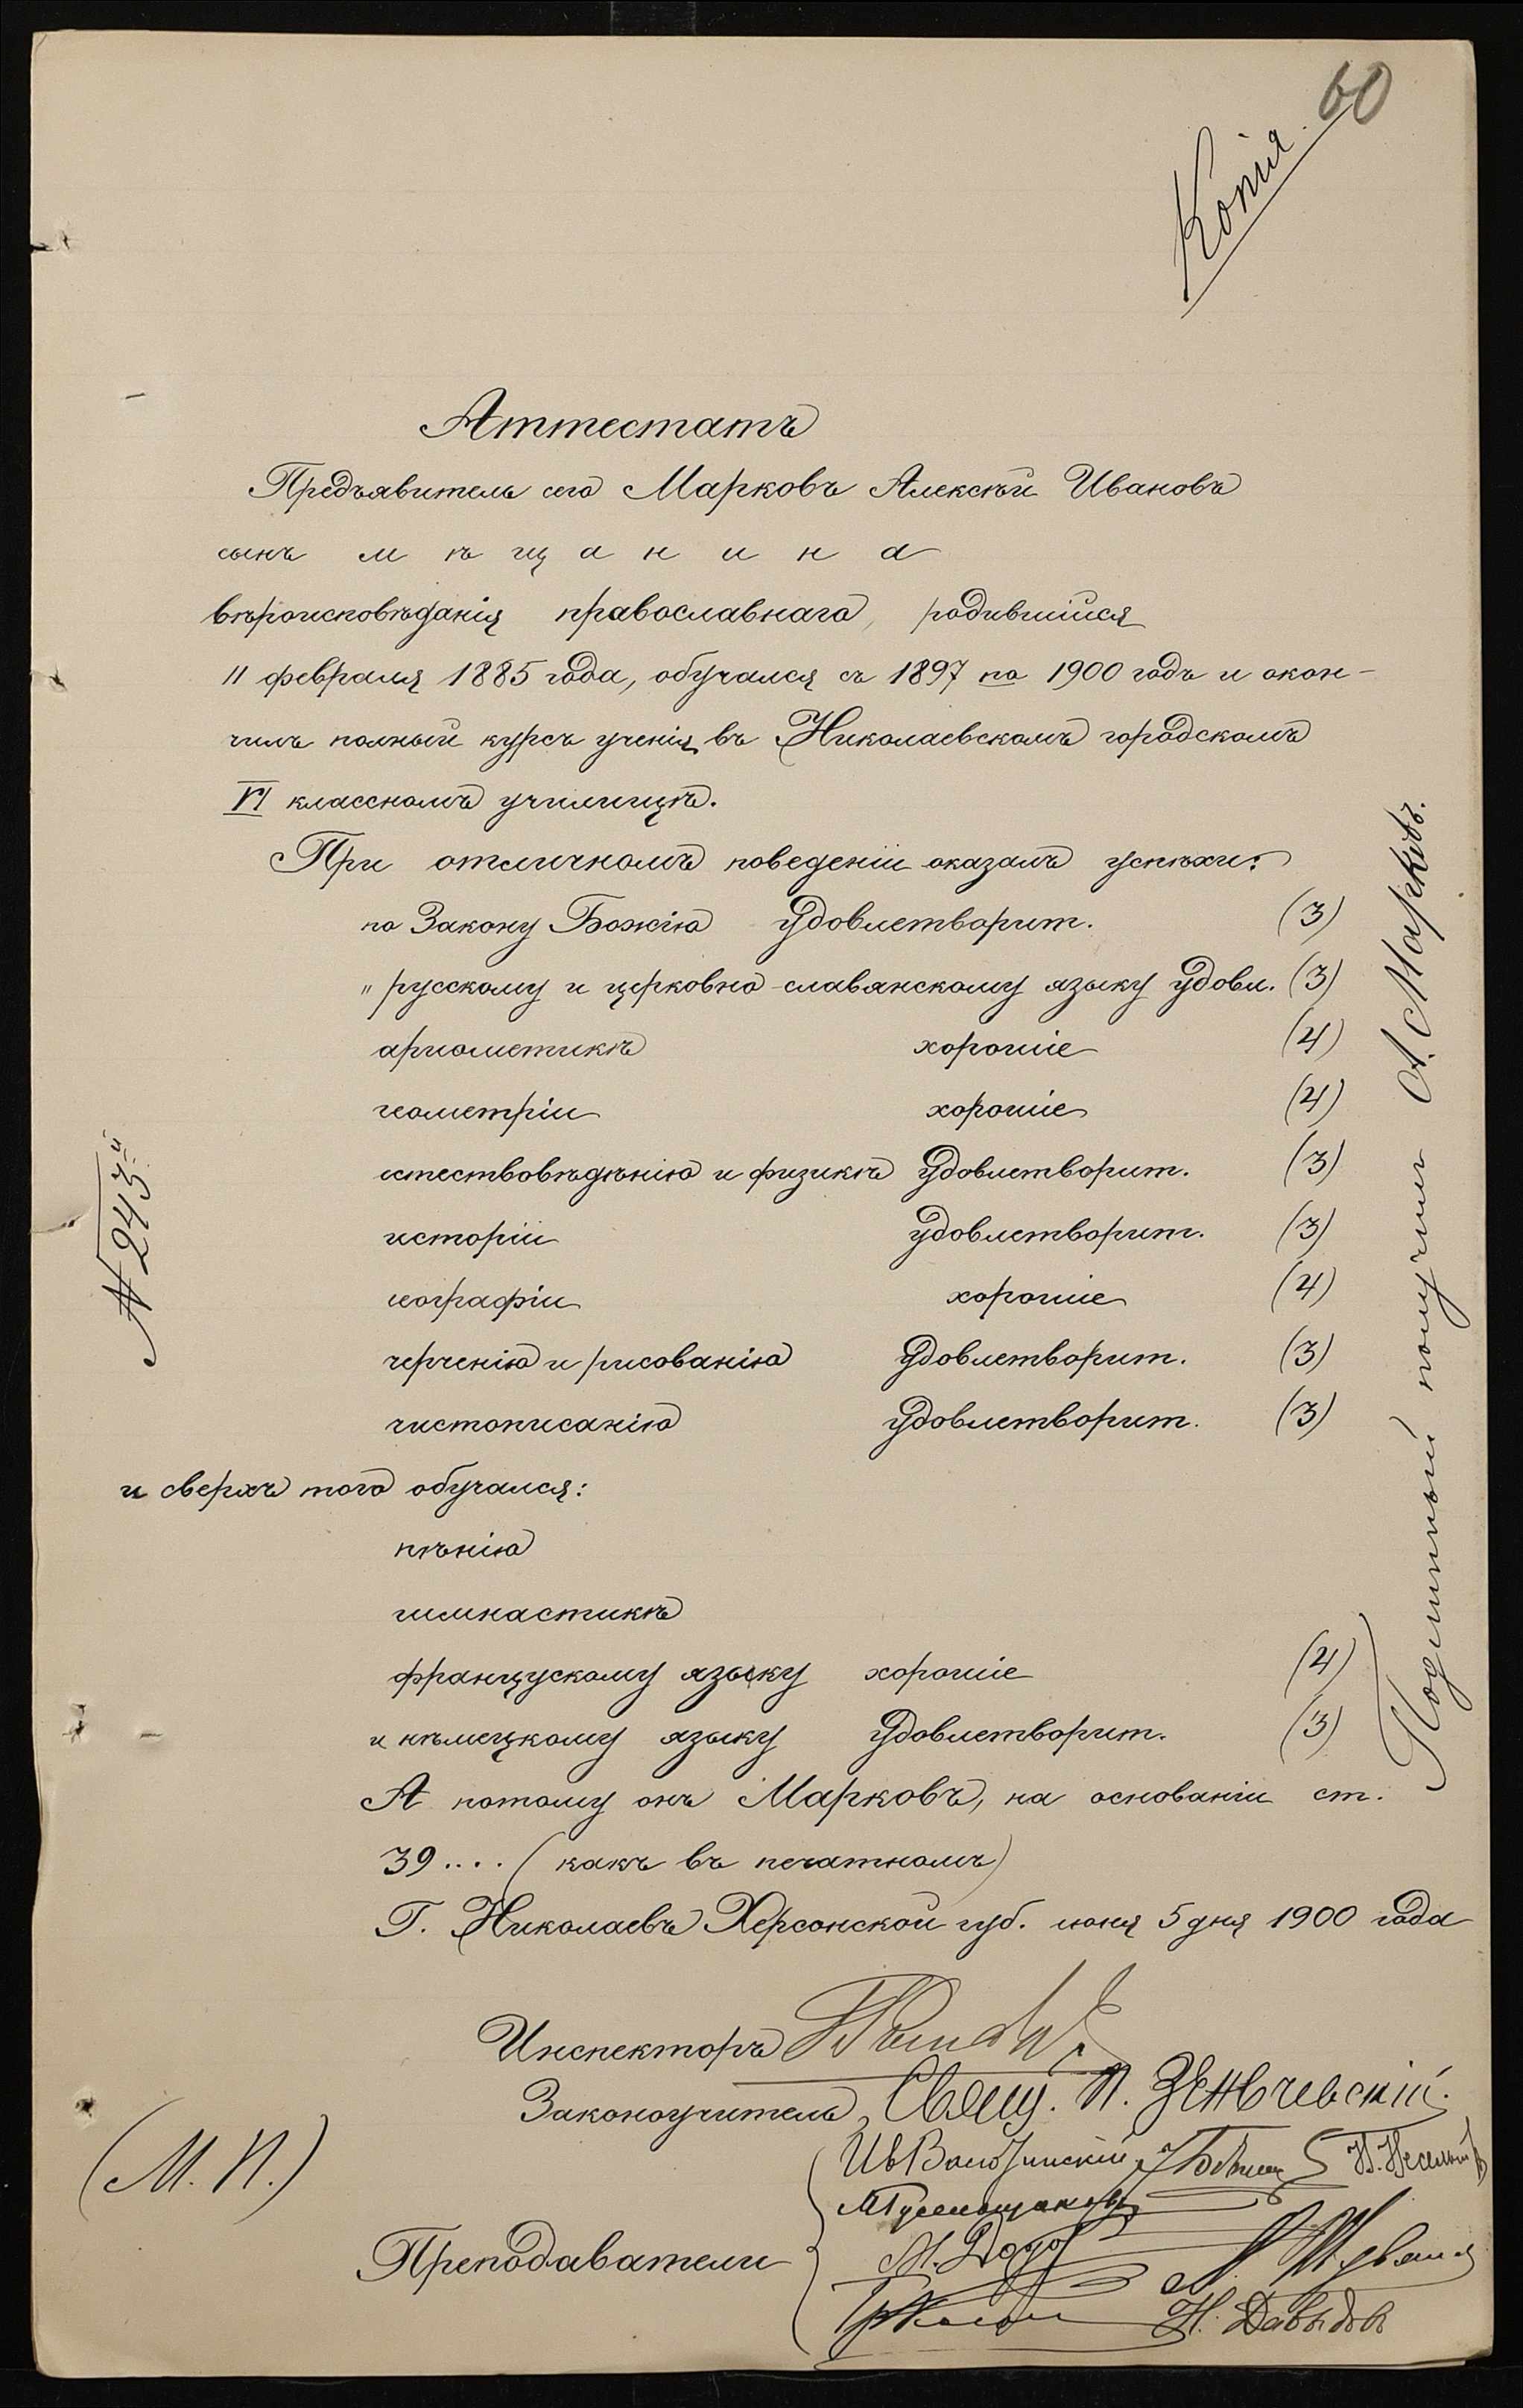 60
Копія.
Аттестатъ
Предъявитель сего Марковъ Алексѣй Ивановъ
сынъ мѣщанина
вѣроисповѣданія православнаго, родившійся
11 февраля 1885 года, обучался съ 1897 по 1900 годъ и окон-
чилъ полный курсъ ученія въ Николаевскомъ городскомъ
VI классномъ училищѣ.
При отличномъ поведеніи оказалъ успѣхи:
по Закону Божію удовлетворит. (3)
" русскому и церковно-славянскому языку удовл. (3)
ариѳметикѣ хорошіе (4)
геометріи хорошіе (4)
естествовѣдѣнію и физикѣ удовлетворит. (3)
исторіи удовлетворит. (3)
географіи хорошіе (4)
черченію и рисованію удовлетворит. (3)
чистописанію удовлетворит. (3)
и сверхъ того обучался:
пѣнію
гимнастикѣ
французскому языку хорошіе (4)
и нѣмецкому языку удовлетворит. (3)
А потому онъ Марковъ, на основаніи ст.
39.... (какъ въ печатномъ)
Г. Николаевъ Херсонской губ. июня 5 дня 1900 года
Инспекторъ
Законоучитель, Свящ. П. Зенкчевскій.
(М. П.)
Преподаватели
Н. Давыдовъ
№ 243.й
Подлинный получилъ А. Марковъ.